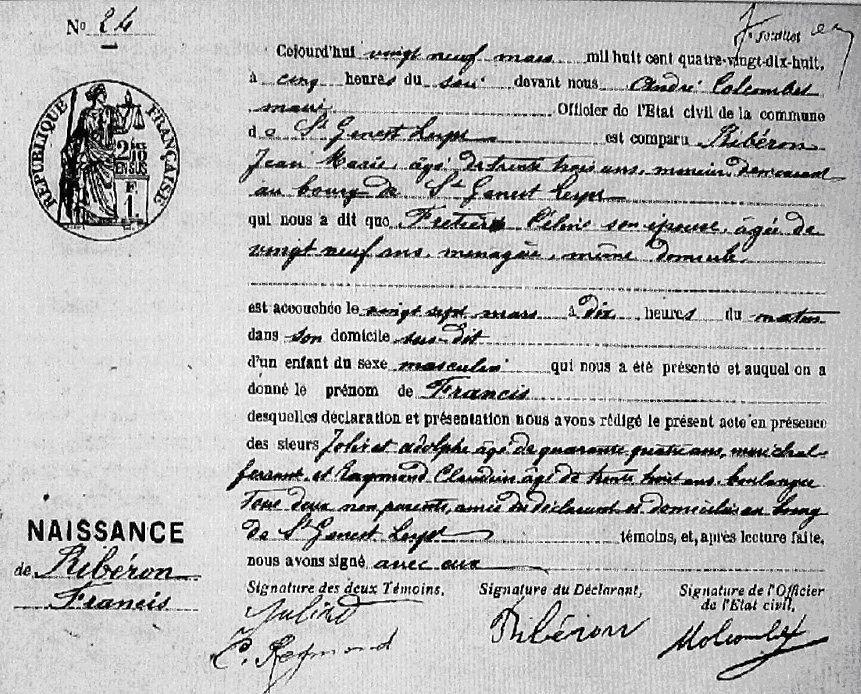 N° 24
7e feuillet
Cejourd'hui vingt neuf mars mil huit cent quatre-vingt-dix-huit,
à cinq heures du soir devant nous André Colcombet
maire Officier de l'Etat civil de la commune
de St Genest Lerpt est comparu Ribéron
Jean Marie, âgé de trente trois ans, mineur demeurant
au bourg de St Genest Lerpt
qui nous a dit que Céline son épouse, âgée de
vingt neuf ans, ménagère, même domicile
est accouchée le vingt sept mars à dix heures du matin
dans son domicile sus-dit
d'un enfant du sexe masculin qui nous a été présenté et auquel on a
donné le prénom de Francis
desquelles déclaration et présentation nous avons rédigé le présent acte en présence
des sieurs adolphe âgé de quarante quatre ans, maréchal-
ferrant, et Raymond Claudius âgé de trente huit ans, boulanger
Tous deux non parents, amis du déclarant et domiciliés au bourg
de St Genest Lerpt témoins, et, après lecture faite,
nous avons signé avec eux
Signature des deux Témoins, Signature du Déclarant, Signature de l'Officier
de l'Etat civil,
C. Reymond Ribéron Colcombet
RÉPUBLIQUE FRANÇAISE
2/10
EN SUS
F.
1
NAISSANCE
de Ribéron
Francis